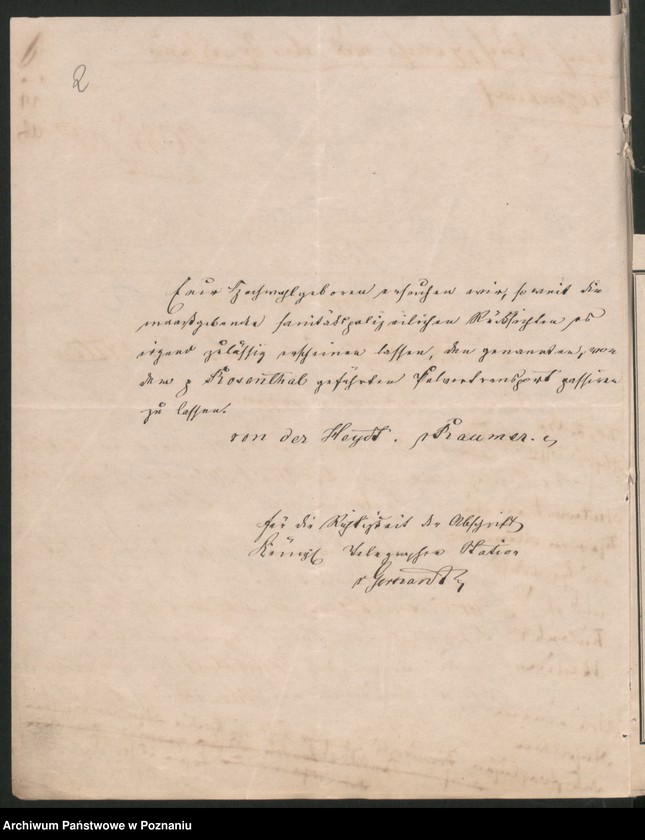 2
Euer Hochwohlgeboren ersuchen wir, soweit die
maaßgebende sanitätspolizeilichen Rücksichten es
irgend zulässig erscheinen lassen, den genannten, von
dem p Rosenthal geführten Pulvertransport passiren
zu lassen.
von der Heydt. Raumer.
für die Richtigkeit der Abschrift
Königl Telegraphen Station
Archiwum Państwowe w Poznaniu